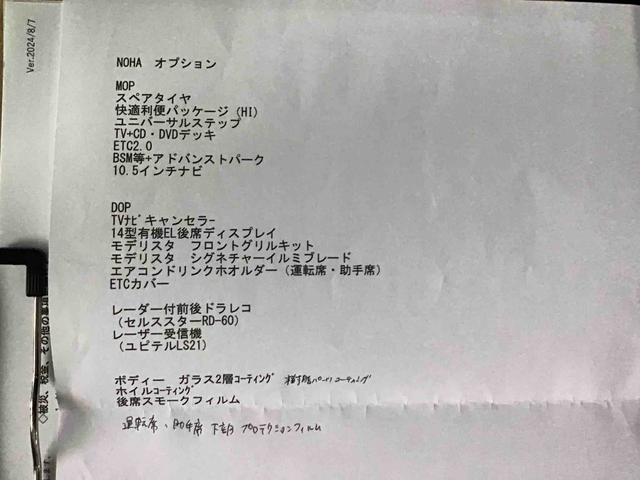 Ver.2024/8/7
NOHA オプション
MOP
スペアタイヤ
快適利便パッケージ（HI）
ユニバーサルステップ
TV+CD・DVDデッキ
ETC2.0
BSM等+アドバンストパーク
10.5インチナビ
DOP
TVﾅﾋﾞキャンセラー
14型有機EL後席ディスプレイ
モデリスタ　フロントグリルキット
モデリスタ　シグネチャーイルミブレード
エアコンドリンクホオルダー（運転席・助手席）
ETCカバー
レーダー付前後ドラレコ
（セルススターRD-60）
レーザー受信機
（ユピテルLS21）
ボディー　ガラス2層ｺｰﾃｨﾝｸﾞ 樹脂パーツコーティング
ホイルｺｰﾃｨﾝｸﾞ
後席スモークフィルム
運転席、助手席 下部 プロテクションフィルム